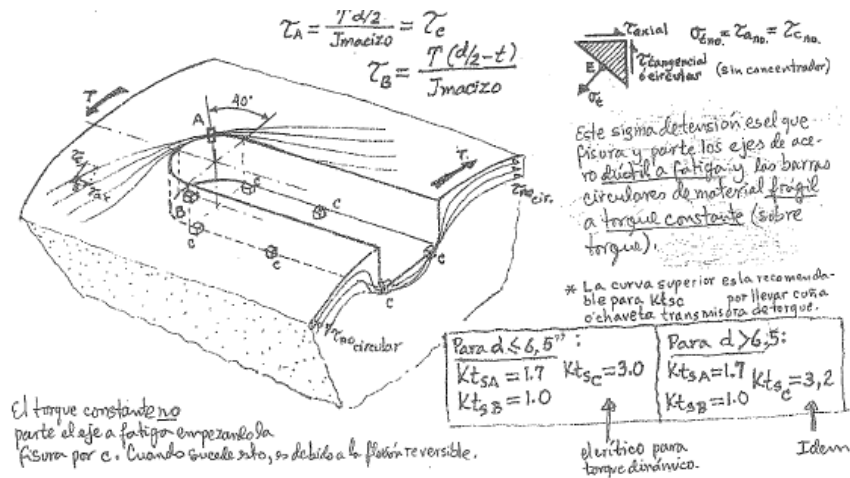 τA = T d/2 / Jmacizo = τc
τB = T (d/2 - t) / Jmacizo
τaxial
σt no. = τa no. = τc no.
τtangencial
o circular (sin concentrador)
E
σt
Este sigma de tensión es el que
fisura y parte los ejes de ace-
ro dúctil a fatiga y las barras
circulares de material frágil
a torque constante (sobre
torque).
* La curva superior es la recomenda-
ble para Ktsc por llevar cuña
o chaveta transmisora de torque.
T
A
40°
T
τc
τax
B
c
c
c
c
c
c
τno cir.
τno circular
Para d ≤ 6,5":
KtSA = 1.7 KtSC = 3.0
KtSB = 1.0
Para d > 6,5:
KtSA = 1.7 KtSC = 3,2
KtSB = 1.0
el crítico para
torque dinámico.
Idem
El torque constante no
parte el eje a fatiga empezando la
fisura por c. Cuando sucede esto, es debido a la flexión reversible.